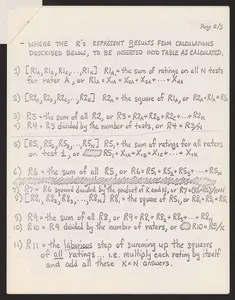 Page 2/3
- WHERE THE R'S REPRESENT RESULTS FROM CALCULATIONS
DESCRIBED BELOW, TO BE INSERTED INTO TABLE AS CALCULATED.
1) [R1A, R1B, R1C, ..., R1K] R1A = the sum of ratings on all N tests
for rater A, or R1A = X1A + X2A + X3A + ... + XNA
2) [R2A, R2B, R2C, ..., R2K] R2A = the square of R1A, or R2A = R1A × R1A
3) R3 = the sum of all R2, or R3 = R2A + R2B + ... + R2K
4) R4 = R3 divided by the number of tests, or R4 = R3/N
5) [R51, R52, R53, ..., R5N] R51 = the sum of ratings for all raters
on test 1, or R51 = X1A + X1B + X1C + ... + X1K
6) R6 = the sum of all R5, or R6 = R51 + R52 + R53 + ... + R5N
7) R7 = R6 squared divided by the product of K and N, or R7 = (R6×R6)/K×N
8) [R81, R82, R83, ..., R8N] R81 = the square of R51, or R81 = R51 × R51
9) R9 = the sum of all R8, or R9 = R81 + R82 + R83 + ... + R8N
10) R10 = R9 divided by the number of raters, or R10 = R9/K
11) R11 = the laborious step of summing up the squares
of all ratings ... i.e. multiply each rating by itself
and add all these K×N answers.